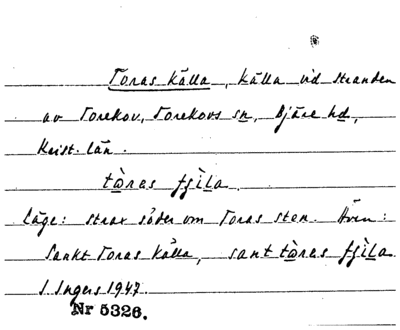 Toras källa, källa vid stranden
av Torekov, Torekovs sn, Bjäre hd,
Krist. län.
tòras fjìla.
Läge: strax söder om Toras sten. Även:
Sankt Toras källa, sant tòras fjìla
I Ingers 1947.
Nr 5326.